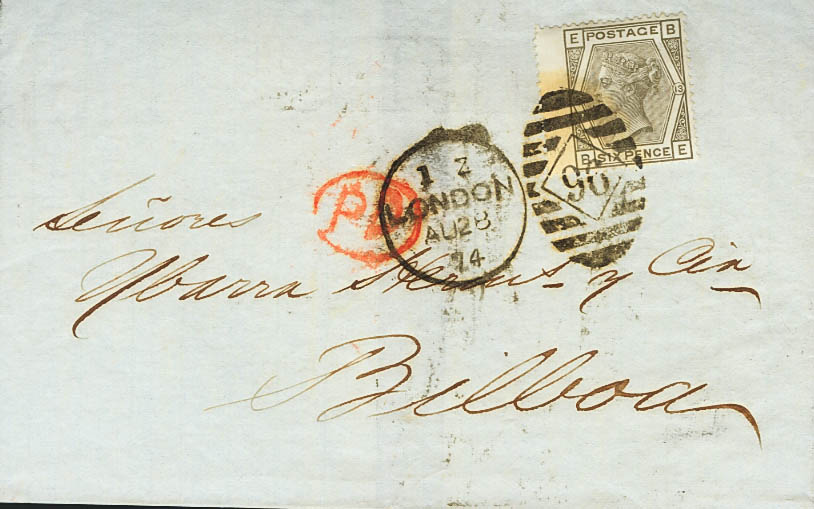 E POSTAGE B
13
B SIX PENCE E
96
PD
1 Z
LONDON
AU 28
74
Señores
Ybarra Herms. y Cia
Bilboa